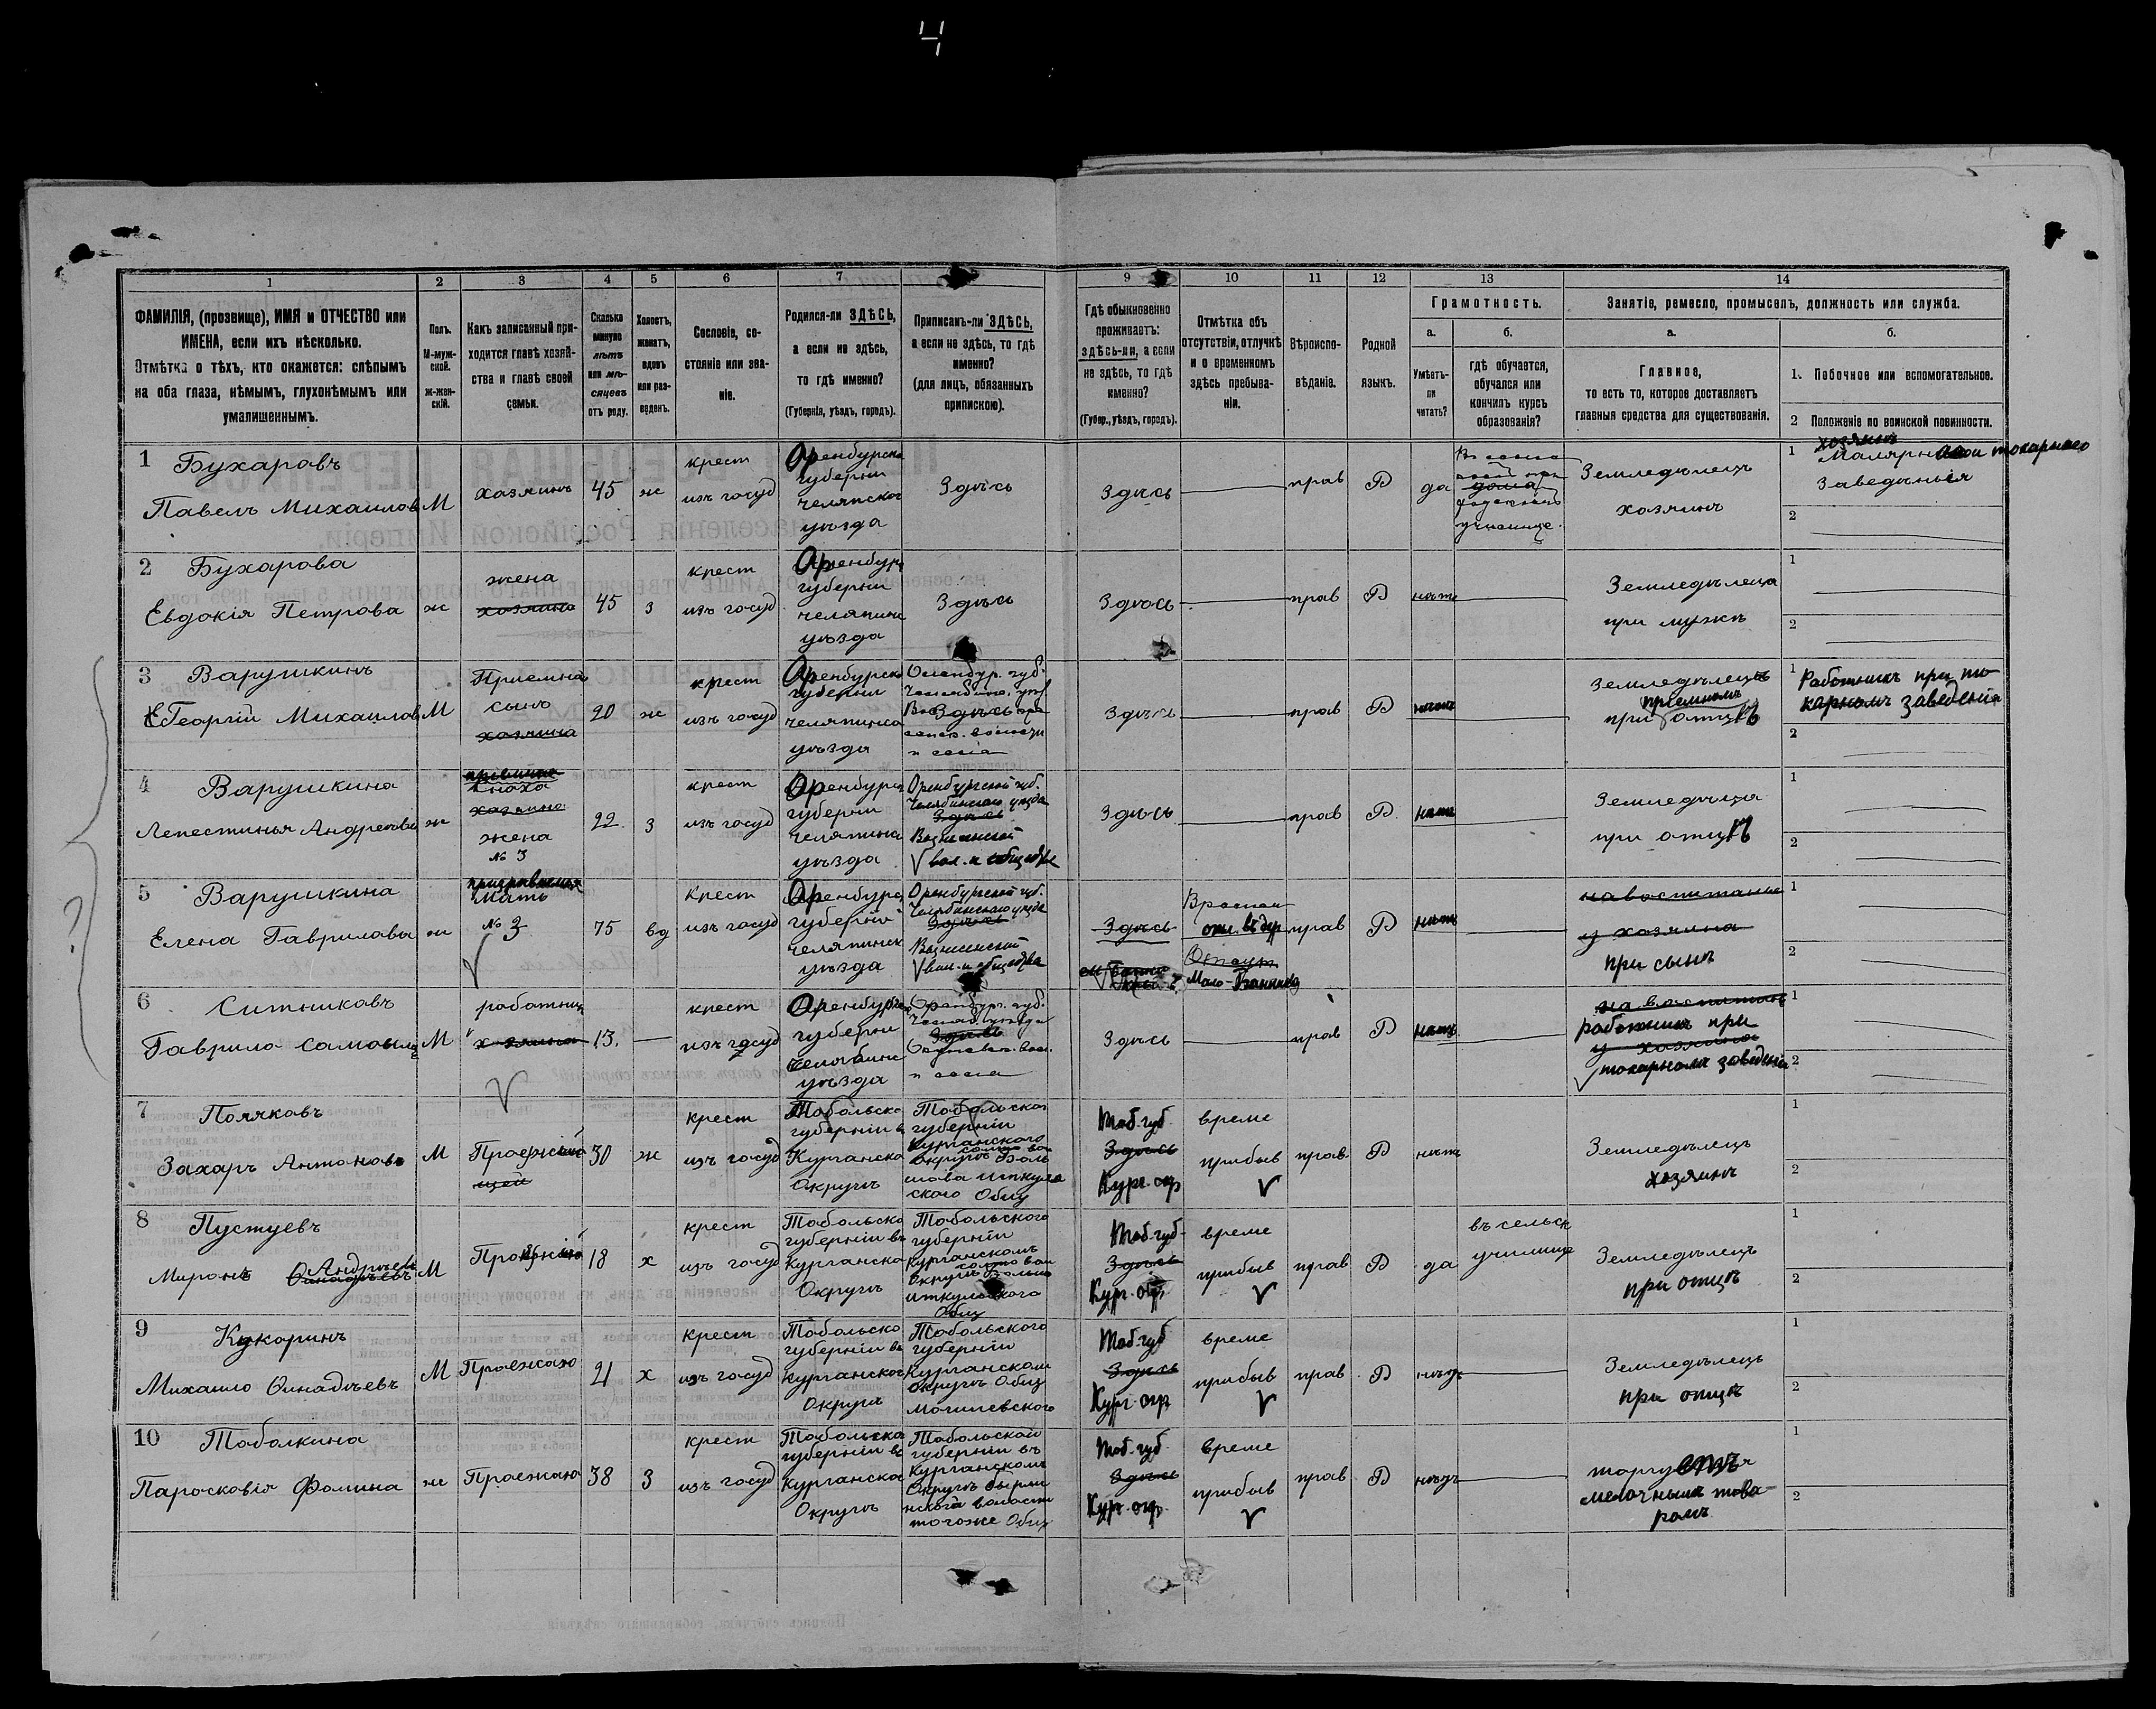 4
1 2 3 4 5 6 7 9 10 11 12 13 14
ФАМИЛІЯ, (прозвище), ИМЯ и ОТЧЕСТВО или
ИМЕНА, если ихъ нѣсколько.
Отмѣтка о тѣхъ, кто окажется: слѣпымъ
на оба глаза, нѣмымъ, глухонѣмымъ или
умалишеннымъ.
Полъ.
М-муж-
ской.
ж-жен-
скій.
Какъ записанный при-
ходится главѣ хозяй-
ства и главѣ своей
семьи.
Сколько
минуло
лѣтъ
или мѣ-
сяцевъ
отъ роду.
Холостъ,
женатъ,
вдовъ
или раз-
веденъ.
Сословіе, со-
стояніе или зва-
ніе.
Родился-ли ЗДѢСЬ,
а если не здѣсь,
то гдѣ именно?
(Губернія, уѣздъ, городъ).
Приписанъ-ли ЗДѢСЬ,
а если не здѣсь, то гдѣ
именно?
(для лицъ, обязанныхъ
припискою).
Гдѣ обыкновенно
проживаетъ:
здѣсь-ли, а если
не здѣсь, то гдѣ
именно?
(Губер., уѣздъ, городъ).
Отмѣтка объ
отсутствіи, отлучкѣ
и о временномъ
здѣсь пребыва-
ніи.
Вѣроиспо-
вѣданіе.
Родной
языкъ.
Грамотность.
а.
Умѣетъ-
ли
читать?
б.
гдѣ обучается,
обучался или
кончилъ курсъ
образованія?
Занятіе, ремесло, промыселъ, должность или служба.
а.
Главное,
то есть то, которое доставляетъ
главныя средства для существованія.
б.
1. Побочное или вспомогательное.
2 Положеніе по воинской повинности.
1 Бухаровъ
Павелъ Михаилов
М
хозяинъ
45
ж
крест
изъ госуд
Оренбурско
губерни
челяпског
уѣзда
Здѣсь
Здѣсь
прав
Р
да
училище.
Земледѣлецъ
хозяинъ
1 хозяинъ
токарнаго
Заведенія
2
2 Бухарова
Евдокія Петрова
ж
жена
хозяина
45
з
крест
изъ госуд
Оренбур
губерни
челяпинс
уѣзда
Здѣсь
Здѣсь
прав
Р
нѣтъ
Земледѣлеца
при мужѣ
1
2
3 Варушкинъ
Георгій Михаилов
М
Приемна
сынъ
хозяина
20
ж
крест
изъ госуд
Оренбурско
губерни
челяпинса
уѣзда
Здѣсь
Здѣсь
прав
Р
Земледѣлецъ
приемномъ
при отцѣ
1 Работникъ при то
карномъ заведеніи
2
4 Варушкина
Лепестинья Андреева
ж
сноха
хозяина
жена
№ 3
22
з
крест
изъ госуд
Оренбурс
губерни
челяпина
уѣзда
Оренбургской губ.
Челябинскаго уѣзда
Здѣсь
Здѣсь
прав
Р
нѣтъ
Земледѣлца
при отцѣ
1
2
5 Варушкина
Елена Гаврилова
ж
Мать
№ 3
75
вд
Крест
изъ госуд
Оренбурс
губерніі
челяпинск
уѣзда
Оренбургской губ.
Челябинскаго уѣзда
Здѣсь
Здѣсь
прав
Р
нѣтъ
на воспитание
у хозяина
при сынѣ
1
2
6 Ситниковъ
Гаврило Самоиль
М
работник
хозяина
13.
крест
изъ госуд
Оренбургс
губерни
Челябинс
уѣзда
Здѣсь
Здѣсь
прав
Р
нѣтъ
работникъ при
у хозяина
токарномъ заведеніи
1
2
7 Поляковъ
Захаръ Антоновъ
М
Проезжаю
щей
30
ж
крест
изъ госуд
Тобольско
губерніи в
Курганско
Округѣ
Тобольской
губерніи
Курганского
Тоб. губ
Здѣсь
Кург. окр
време
прибыв
прав.
Р
нѣтъ
Земледѣлецъ
хозяинъ
1
2
8 Пустуевъ
Андреевъ
Миронъ
М
18
х
крест
изъ госуд
Тобольско
губерніи въ
Курганско
Округѣ
Тобольского
губерніи
Курганскомъ
Общ
Тоб. губ.
Здѣсь
Кург. окр.
време
прибыв
прав
Р
да
въ сельск
училище
Земледѣлецъ
при отцѣ
1
2
9 Кукаринъ
Михаило Финадѣевъ
М
Проежаю
21
х
крест
изъ госуд
Тобольско
губерніи въ
Курганског
Округѣ
Тобольского
губерніи
Курганском
Округѣ Общ
Могилевского
Тоб. губ
Здѣсь
Кург. окр
време
прибыв
прав
Р
нѣтъ
Земледѣлецъ
при отцѣ
1
2
10 Тоболкина
Паросковія Фомина
ж
Проежаю
38
з
крест
изъ госуд
Тобольско
губерніи въ
Курганско
Округѣ
Тобольской
губерніи въ
Курганскомъ
Округѣ
волости
тогоже Общ
Тоб. губ.
Здѣсь
Кург. окр.
време
прибыв
прав
Р
нѣтъ
мелочнымъ това
ромъ
1
2